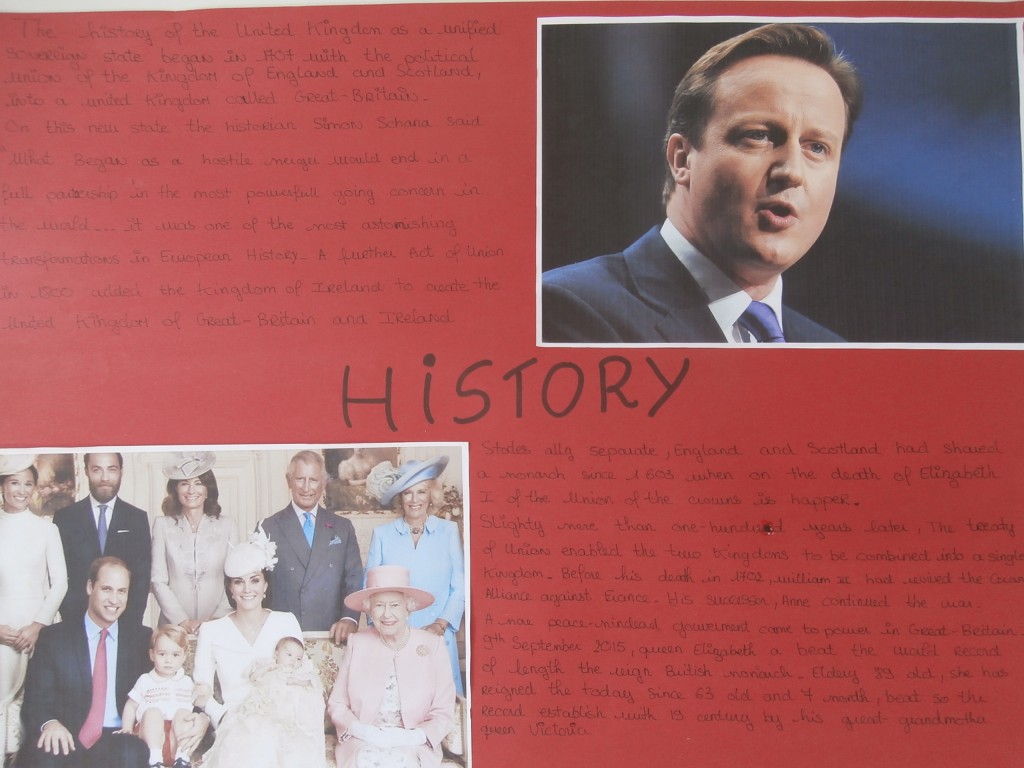 The history of the United Kingdon as a unified
Sovereign state began in 1707 with the political
union of the Kingdom of England and Scotland,
into a united Kingdom called Great-Britain.
On this new state the historian Simon Schana said
"What Began as a hostile merger would end in a
full partership in the most powerfull going concern in
the world... it was one of the most astonishing
transformations in European History. A further Act of Union
in 1800 added the Kingdom of IReland to create the
United Kingdom of Great-Britain and IReland
HiSTORY
States ally separate, England and Scotland had shared
a monarch since 1603 when on the death of Elizabeth
I of the Union of the crowns is happer.
Slighty more than one-hundred years later, The treaty
of Union enabled the two Kingdons to be combined into a single
Kingdom. Before his death in 1702, William III had revived the
Alliance against France. His successor, Anne continued the war.
A peace-mindead gouverment came to power in Great-Britain.
9th September 2015, queen Elizabeth a beat the world record
of length the reign British monarch. Eldery 89 old, she has
reigned the today since 63 old and 7 month, beat so the
record establish with 19 century by his great grandmother
queen Victoria